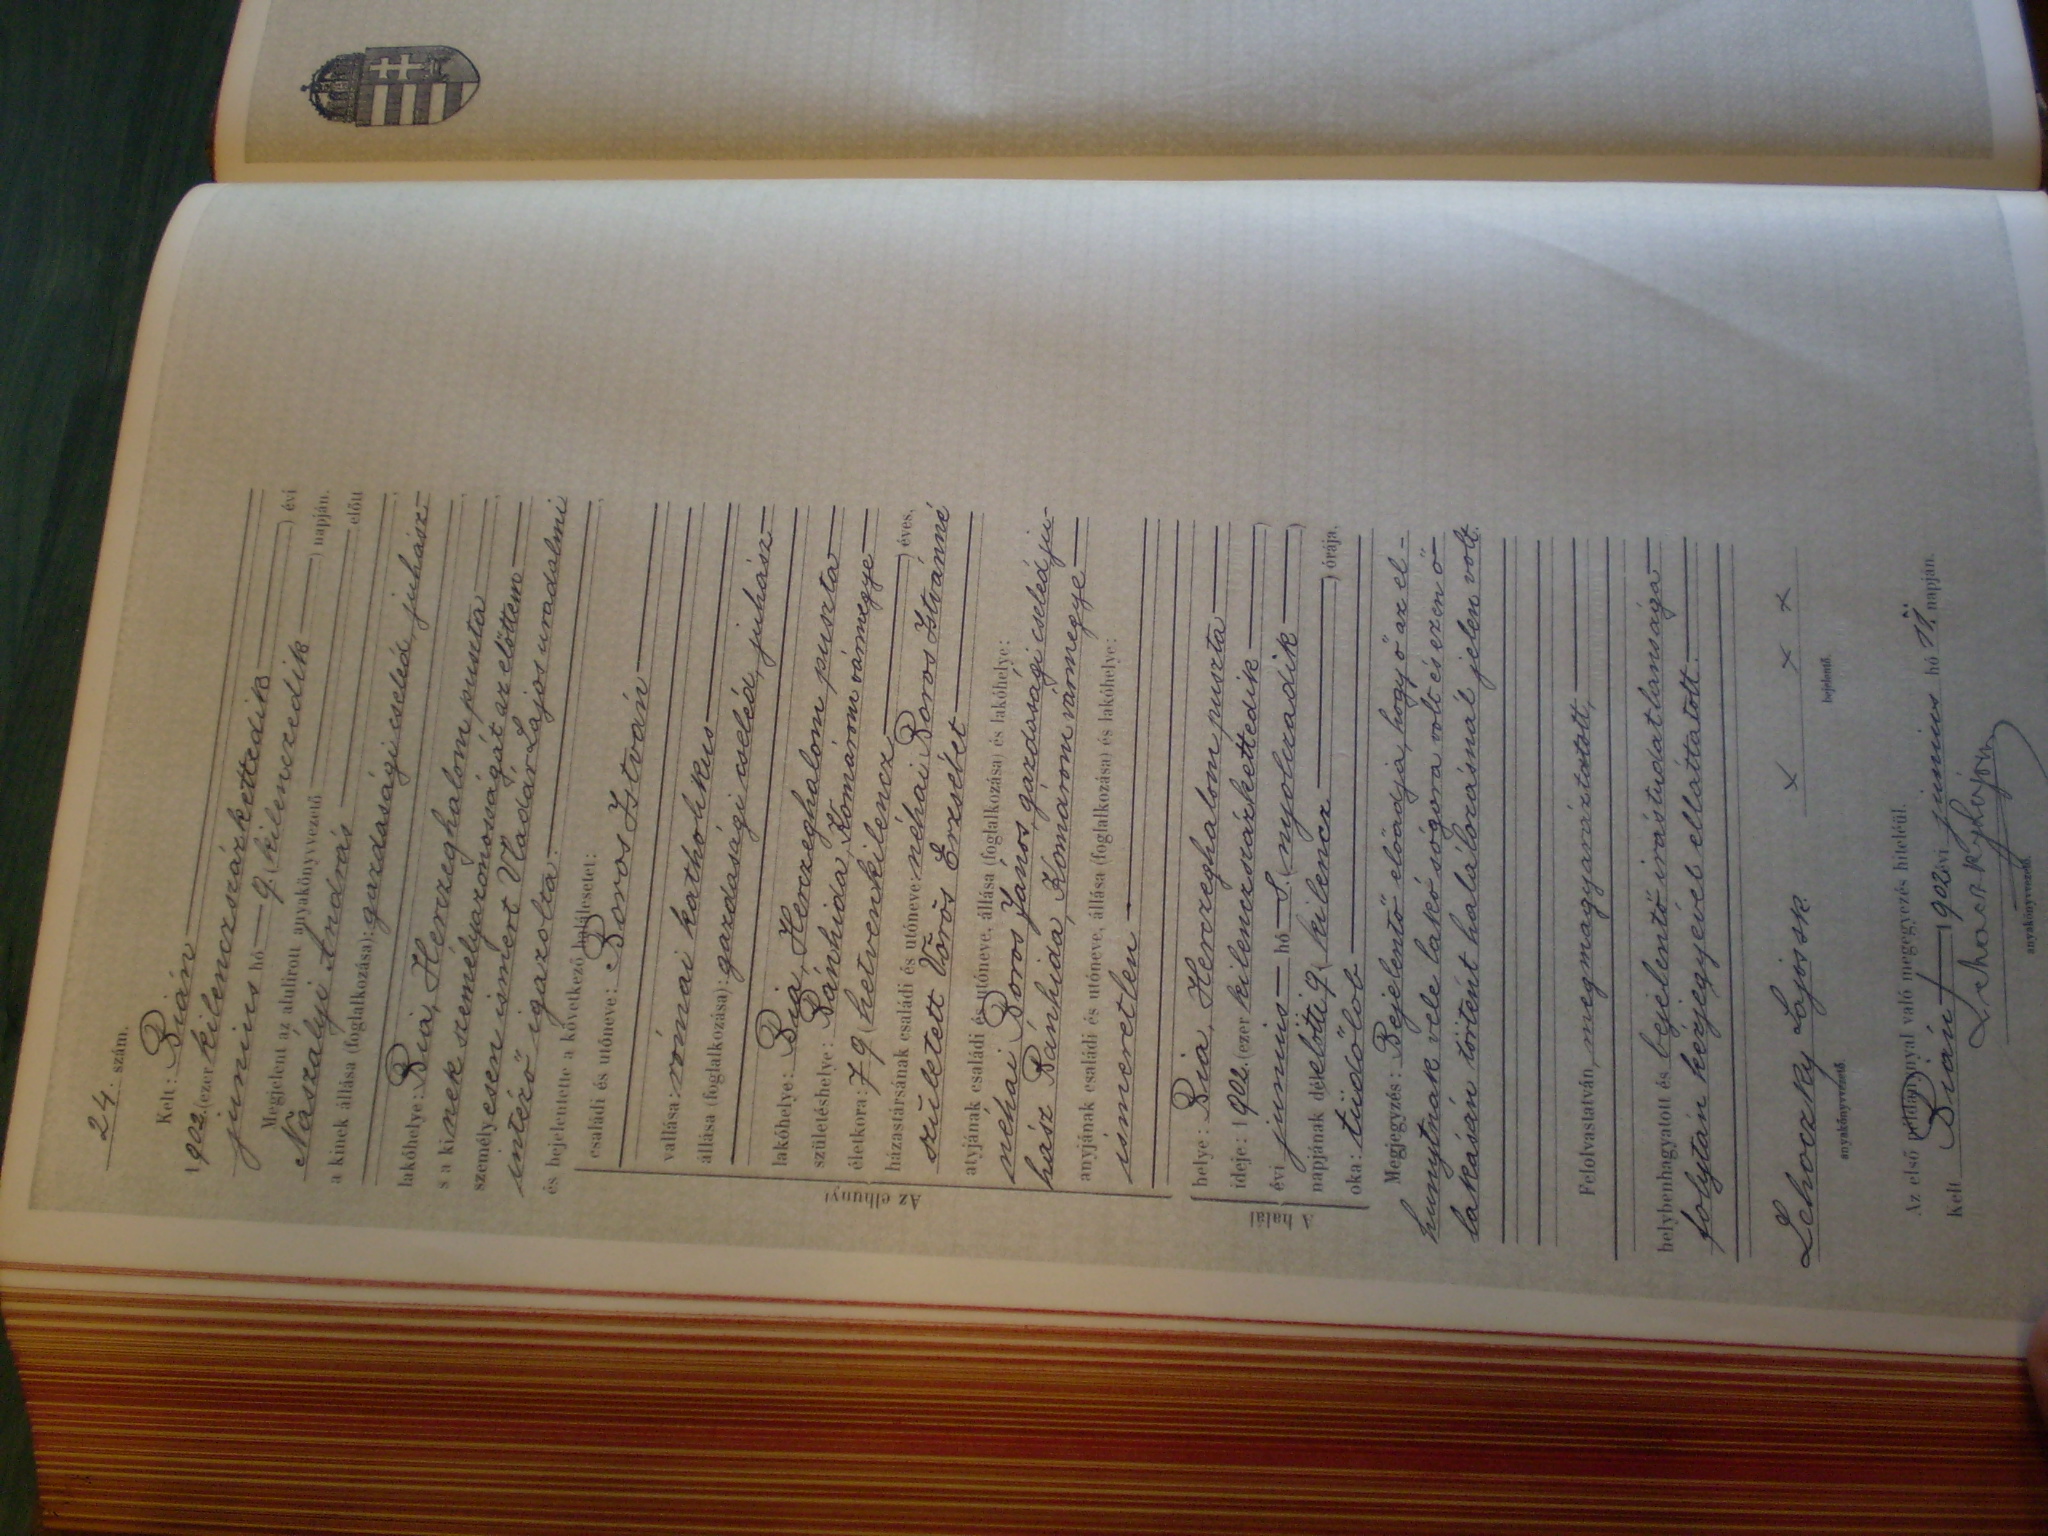 24. szám.
Kelt: Bián
1902. (ezer kilenczszázkettedik) évi
junius hó 9. (kilenczedik) napján.
Megjelent az alulirott anyakönyvezető előtt
Naszályi András
a kinek állása (foglalkozása): gazdasági cseléd, juhász
lakóhelye: Bia, Herczeghalom puszta
s a kinek személyazonosságát az előttem
személyesen ismert Vladár Lajos uradalmi
intéző igazolta.
és bejelentette a következő halálesetet:
Az elhunyt
családi és utóneve: Boros István
vallása: római katholikus
állása (foglalkozása): gazdasági cseléd, juhász
lakóhelye: Bia, Herczeghalom puszta
születéshelye: Bánhida, Komárom vármegye
életkora: 79 (hetvenkilencz) éves,
házastársának családi és utóneve: néhai Boros Istvánné
született Vörös Erzsébet
atyjának családi és utóneve, állása (foglalkozása) és lakóhelye:
néhai Boros János, gazdasági cseléd ju-
hász Bánhida, Komárom vármegye
anyjának családi és utóneve, állása (foglalkozása) és lakóhelye:
ismeretlen
A halál
helye: Bia, Herczeghalom puszta
ideje: 1902. (ezer kilenczszázkettedik)
évi junius hó 8. (nyolczadik)
napjának délelőtti 9 (kilencz) órája,
oka: tüdőlob
Megjegyzés: Bejelentő előadja, hogy ő az el-
hunytnak vele lakó sógora volt és ezen ő
lakásán történt halálozásnál jelen volt.
Felolvastatván, megmagyaráztatott,
helybenhagyatott és bejelentő irástudatlansága
folytán kézjegyével elláttatott.
Lehoczky Lajos sk x x x
anyakönyvezető bejelentő.
Az első példánynyal való megegyezés hiteléül.
Kelt Bián 1902 évi június hó 11. napján.
Lehoczky Lajos
anyakönyvezető.